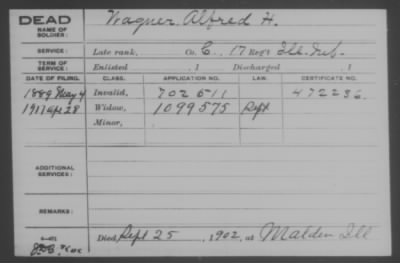 DEAD
NAME OF SOLDIER: Wagner, Alfred H.
SERVICE: Late rank, Co. C, 17 Reg't Ill. Inf.
TERM OF SERVICE: Enlisted , 1 Discharged , 1
DATE OF FILING. CLASS. APPLICATION NO. LAW. CERTIFICATE NO.
1889 May 4 Invalid, 702 511 472236.
1917 Apr 28 Widow, 1099575 Sept
Minor,
ADDITIONAL SERVICES:
REMARKS:
Died Sept 25, 1902, at Malden Ill